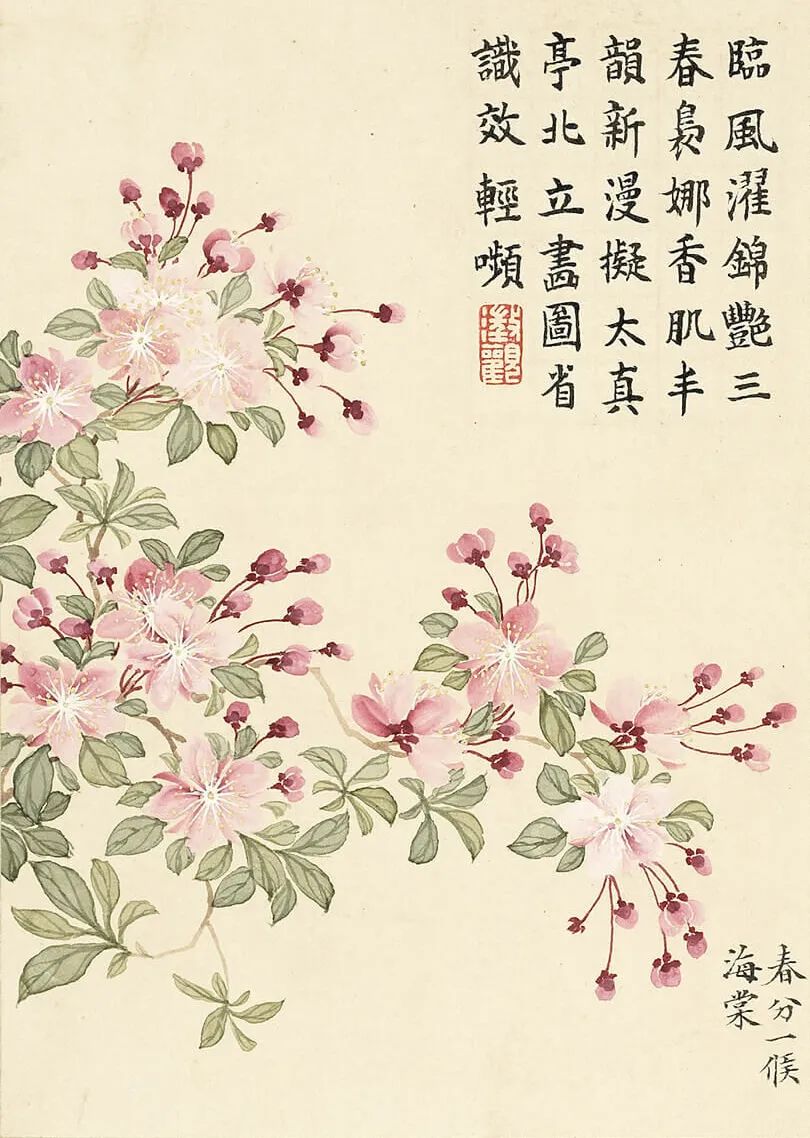 臨風濯錦艷三
春裊娜香肌丰
韻新漫擬太真
亭北立畫圖省
識效輕嚬
澂觀
春分一候
海棠